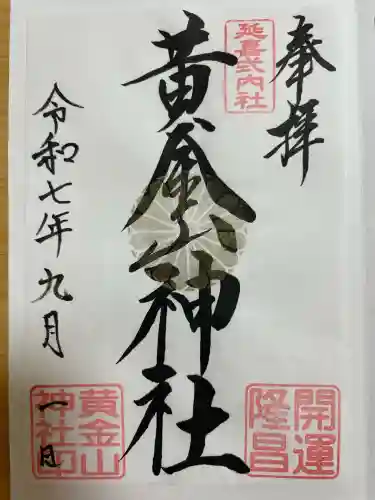 奉拝
延喜式内社
黄金山神社
令和七年九月一日
開運
隆昌
黄金山
神社印